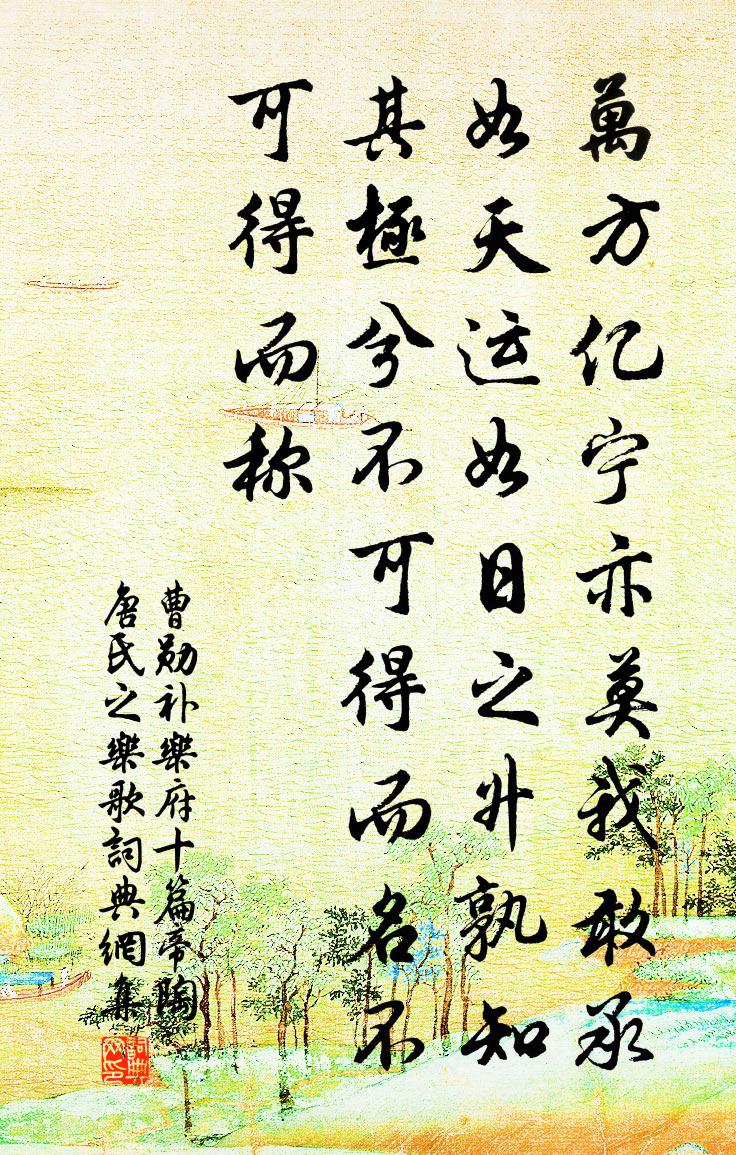 萬方亿宁亦莫我敢承
如天运如日之升孰知
其極兮不可得而名不
可得而称
曹勛补樂府十篇帝陶
唐氏之樂歌詞典網集